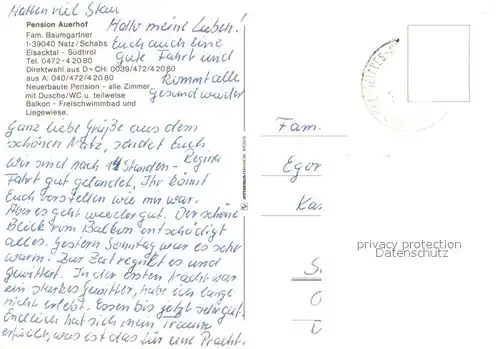 Hatten viel Stau
Hallo meine Lieben!
Pension Auerhof
Fam. Baumgartner
I-39040 Natz/Schabs
Eisacktal - Südtirol
Tel. 0472-4 20 80
Direktwahl aus D+CH: 0039/472/4 20 80
aus A: 040/472/4 20 80
Neuerbaute Pension - alle Zimmer
mit Dusche/WC u. teilweise
Balkon - Freischwimmbad und
Liegewiese.
Euch auch eine
gute Fahrt und
kommt alle
gesund wieder
Ganz liebe Grüße aus dem
schönen Natz, sendet Euch
Regina
Wir sind nach 14 Stunden-
Fahrt gut gelandet, Ihr könnt
Euch vorstellen wie mir war.
Aber es geht wieder gut. Der schöne
Blick vom Balkon entschädigt
alles. Gestern Sonntag war es sehr
warm. Zur Zeit regnet es und
gewittert. In der ersten Nacht war
ein starkes Gewitter, habe ich lange
nicht erlebt. Essen bis jetzt sehr gut.
Endlich hat sich mein Traum
erfüllt, was ist das für eine Pracht.
Fam.
Egor
Ka
privacy protection
Datenschutz